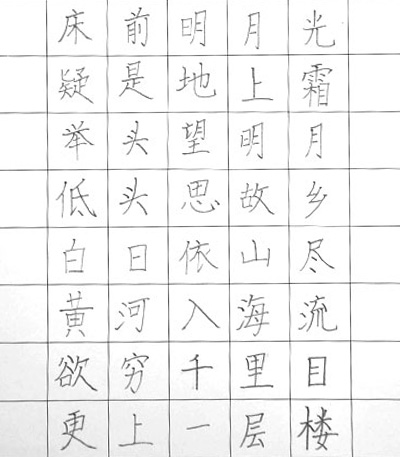 床前明月光
疑是地上霜
举头望明月
低头思故乡
白日依山尽
黄河入海流
欲穷千里目
更上一层楼